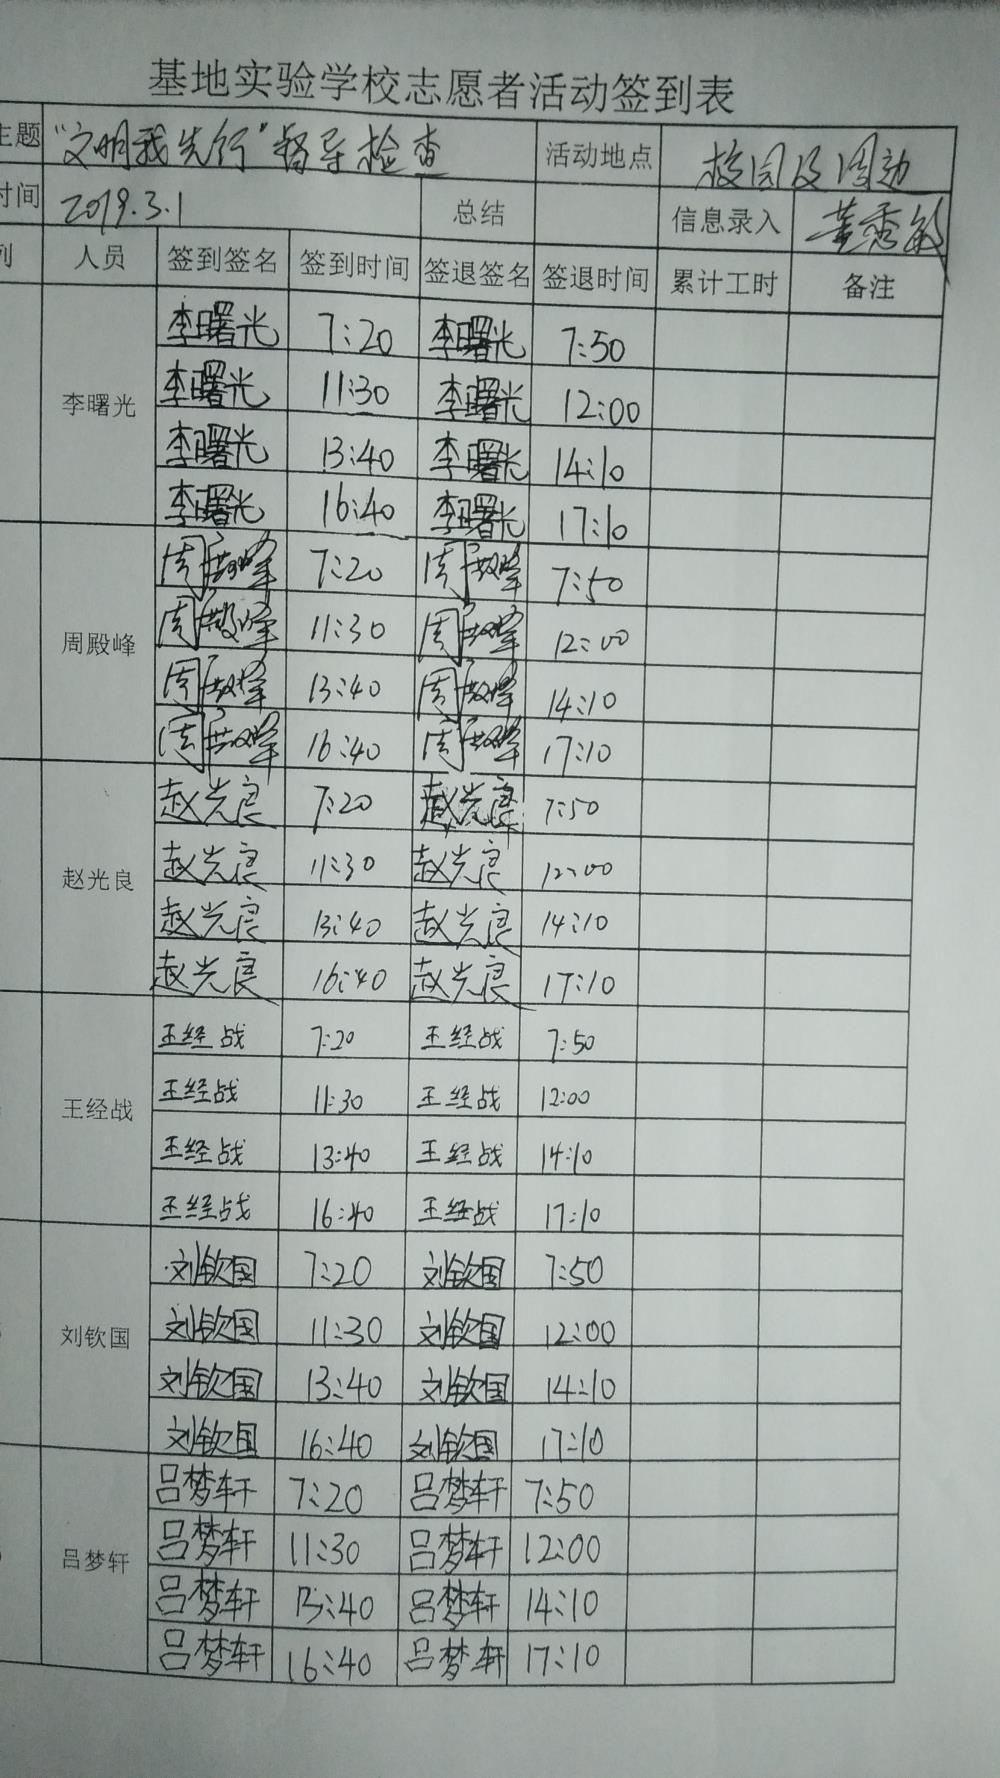 基地实验学校志愿者活动签到表
主题 “文明我先行”督导检查 活动地点 校园及周边
时间 2019.3.1 总结 信息录入 黄秀敏
列 人员 签到签名 签到时间 签退签名 签退时间 累计工时 备注
李曙光 7:20 李曙光 7:50
李曙光 11:30 李曙光 12:00
李曙光
李曙光 13:40 李曙光 14:10
李曙光 16:40 李曙光 17:10
周殿峰 7:20 周殿峰 7:50
周殿峰 11:30 周殿峰 12:00
周殿峰
周殿峰 13:40 周殿峰 14:10
周殿峰 16:40 周殿峰 17:10
赵光良 7:20 赵光良 7:50
赵光良 11:30 赵光良 12:00
赵光良
赵光良 13:40 赵光良 14:10
赵光良 16:40 赵光良 17:10
王经战 7:20 王经战 7:50
王经战 11:30 王经战 12:00
王经战
王经战 13:40 王经战 14:10
王经战 16:40 王经战 17:10
刘钦国 7:20 刘钦国 7:50
刘钦国 11:30 刘钦国 12:00
刘钦国
刘钦国 13:40 刘钦国 14:10
刘钦国 16:40 刘钦国 17:10
吕梦轩 7:20 吕梦轩 7:50
吕梦轩 11:30 吕梦轩 12:00
吕梦轩
吕梦轩 13:40 吕梦轩 14:10
吕梦轩 16:40 吕梦轩 17:10